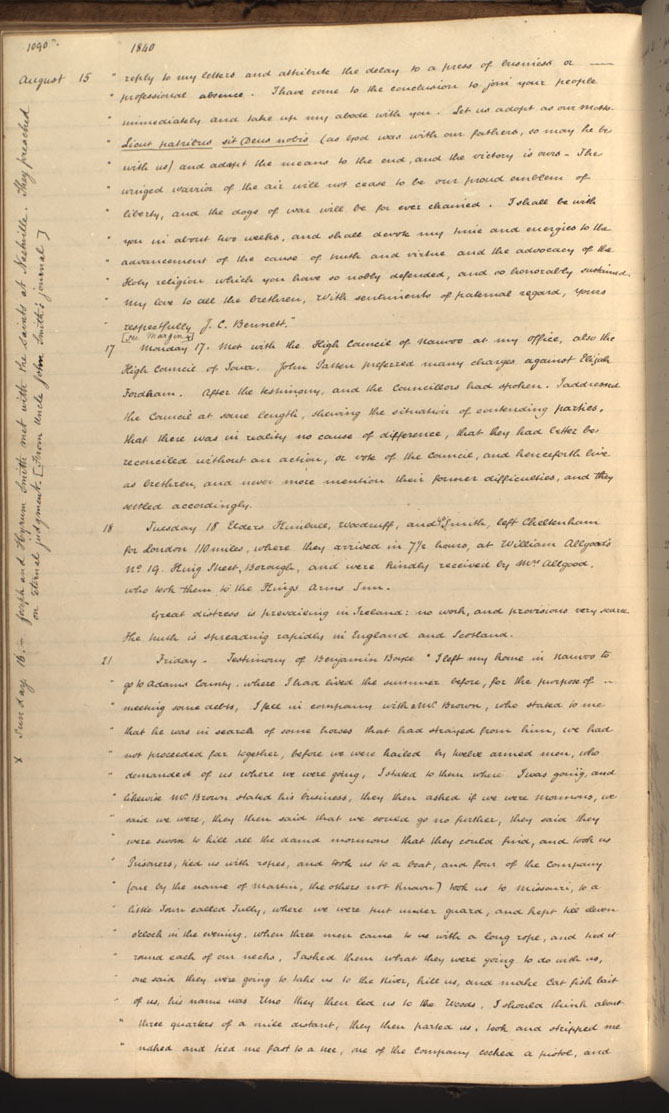 1090
1840
August 15 " reply to my letters and attribute the delay to a press of business or —
" professional absence. I have come to the conclusion to join your people
" immediately and take up my abode with you. Let us adopt as our motto.
" Sicut patribus sit Deus nobis (as God was with our fathers, so may he be
" with us) and adopt the means to the end, and the victory is ours – The
" winged warrior of the air will not cease to be our proud emblem of
" liberty, and the dogs of war will be for ever chained. I shall be with
" you in about two weeks, and shall devote my time and energies to the
" advancement of the cause of truth and virtue and the advocacy of the
" Holy religion which you have so nobly defended, and so honorably sustained.
" My love to all the brethren, With sentiments of paternal regard, yours
" respectfully J. C. Bennett."
[see Margin x]
17 Monday 17. Met with the High Council of Nauvoo at my office, also the
High Council of Iowa. John Patten preferred many charges against Elijah
Fordham. After the testimony, and the Councillors had spoken. I addressed
the Council at some length, shewing the situation of contending parties,
that there was in reality no cause of difference, that they had better be
reconciled without an action, or vote of the Council, and henceforth live
as brethren, and never more mention their former difficulties, and they
settled accordingly.
18 Tuesday 18 Elders Kimball, Woodruff, and Smith, left Cheltenham
for London 110 miles, where they arrived in 7½ hours, at William Allgood's
No 19. King Street, Borough, and were kindly received by Mrs Allgood,
who took them to the Kings Arms Inn.
Great distress is prevailing in Ireland: no work, and provisions very scarce
The truth is spreading rapidly in England and Scotland.
21 Friday – Testimony of Benjamin Boyce "I left my home in Nauvoo to
" go to Adams County. where I had lived the summer before, for the purpose of –
" meeting some debts, I fell in company with a Mr Brown, who stated to me
" that he was in search of some horses that had strayed from him, we had
" not proceeded far together, before we were hailed by twelve armed men, who
" demanded of us where we were going, I stated to them where I was going, and
" likewise Mr Brown stated his business, they then asked if we were Mormons, we
" said we were, they then said that we could go no further, they said they
" were sworn to kill all the damd mormons that they could find, and took us
" Prisoners, tied us with ropes, and took us to a boat, and four of the Company
" (one by the name of Martin, the others not known) took us to Missouri, to a
" little Town called Tully, where we were put under guard, and kept till eleven
" o'clock in the evening. when three men came to us with a long rope, and tied it
" round each of our necks, I asked them what they were going to do with us,
" one said they were going to take us to the River, kill us, and make Cat fish bait
" of us, his name was Uno they then led us to the Woods, I should think about
" three quarters of a mile distant, they then parted us, took and stripped me
" naked and tied me fast to a tree, one of the Company cocked a pistol, and
x Sunday 16. – Joseph and Hyrum Smith met with the Saints at Nashville. They preached
on Eternal judgment. [From Uncle John Smith's journal]